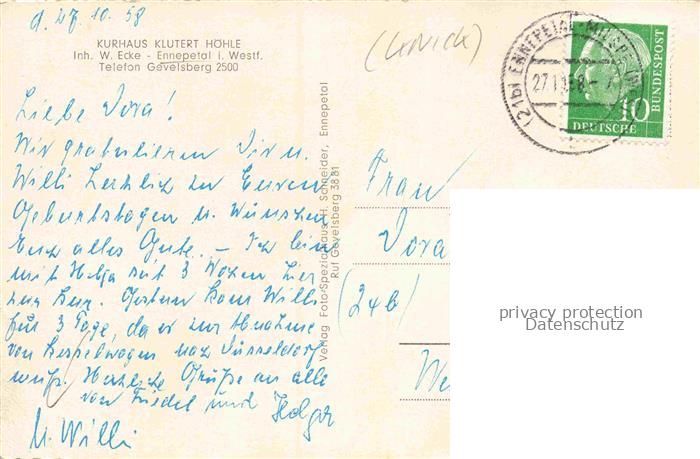 d. 27.10.58
KURHAUS KLUTERT HÖHLE
Inh. W. Ecke - Ennepetal i. Westf.
Telefon Gevelsberg 2500
Liebe Dora!
Wir gratulieren Dir u.
Willi herzlich zu Euren
Geburtstagen u. wünschen
Euch alles Gute. – Ich bin
mit Helga seit 3 Wochen hier
zur Kur. Gestern kam Willi
für 3 Tage, da er zur Abnahme
von Kesselwagen nach Düsseldorf
muß. Herzliche Grüße an alle
von Friedel und Helga
u. Willi
Verlag Foto-Spezialhaus H. Schneider, Ennepetal
Ruf Gevelsberg 3881
(21b) ENNEPETAL-MILSPE
27.10.58
10
DEUTSCHE
BUNDESPOST
Frau
Dora
(24b)
We
privacy protection
Datenschutz